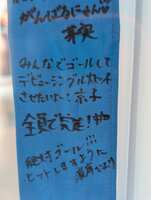 がんばるにゃん
芽実
みんなでゴールして
デビューシングル大ヒット
させたいなー! 京子
全員で完走!! 柚
絶対ゴール!!!
ヒットしますように